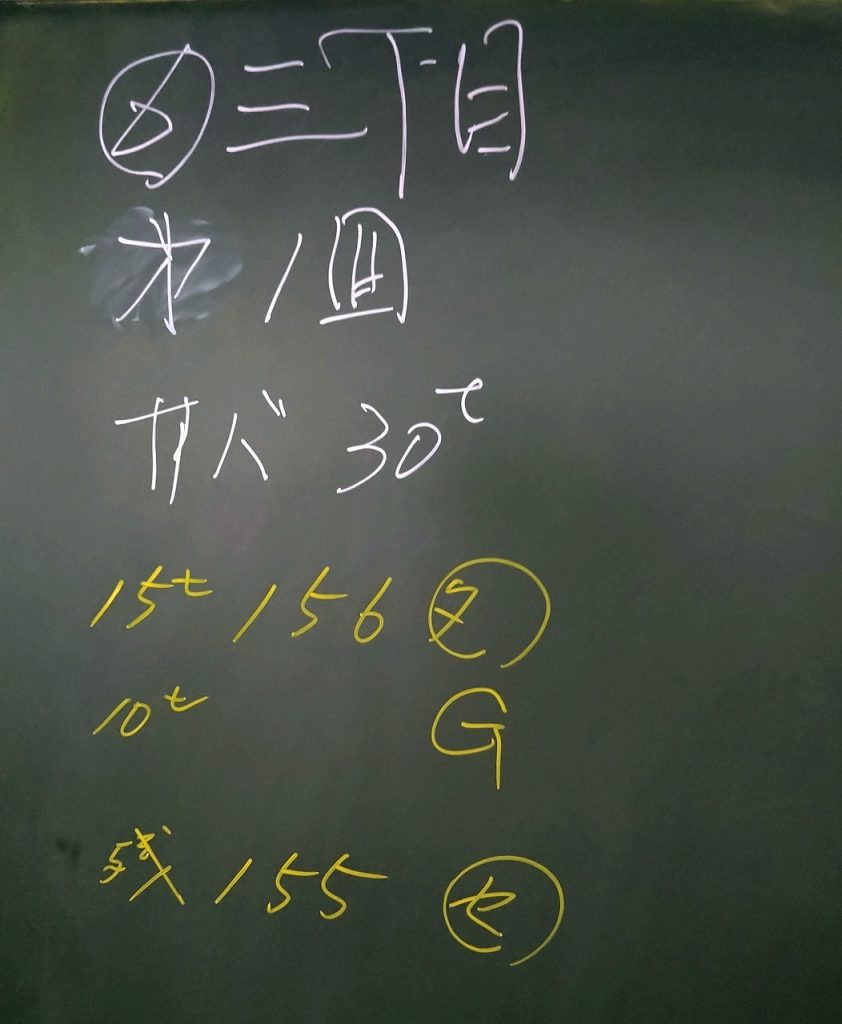 三丁目
オ1個
サバ 30t
15t 156
10t G
残 155 セ